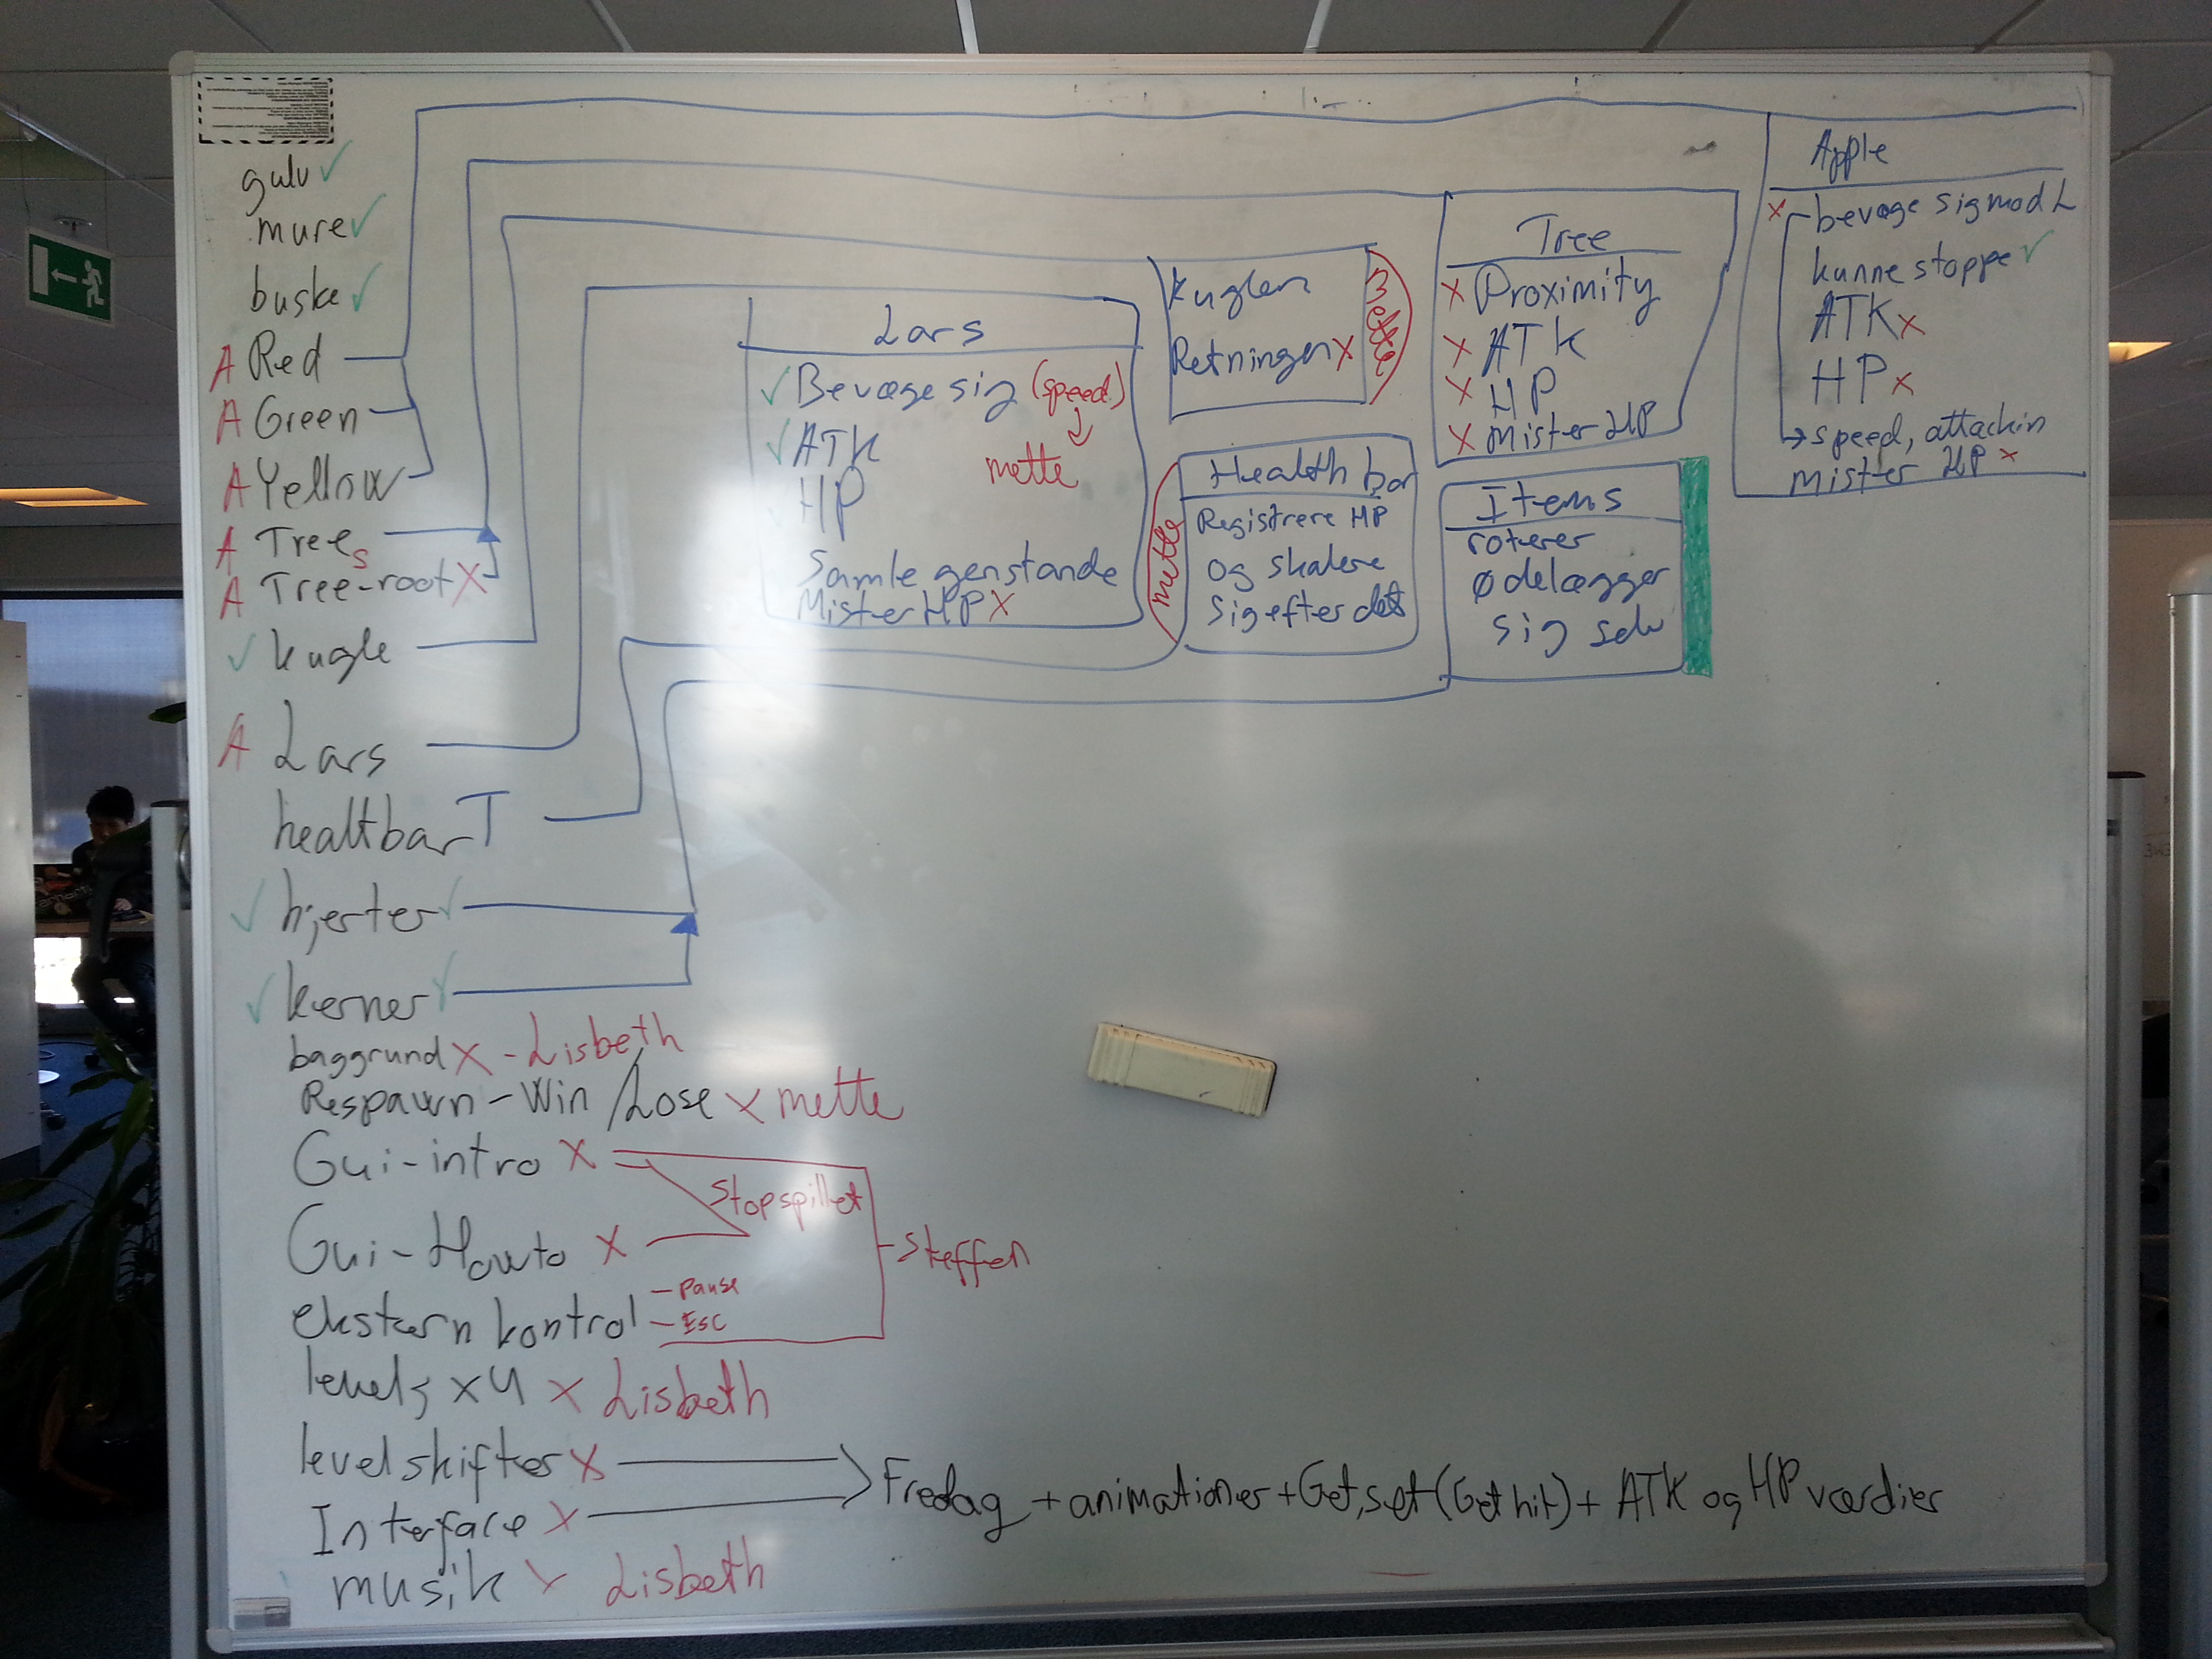 gulv ✓
mure ✓
buske ✓
A Red
A Green
A Yellow
A Trees
A Tree-root X
✓ kugle
A Lars
healtbar T
✓ hjerter ✓
✓ kerner ✓
baggrund X - Lisbeth
Respawn - Win / Lose X mette
Gui-intro X
Stop spillet
Gui-Howto X
Steffen
ekstern kontrol
- Pause
- Esc
levels x4 X Lisbeth
levelskifter X
Interface X
Fredag + animationer + Get, set (Get hit) + ATK og HP værdier
musik X Lisbeth
Lars
✓ Bevæge sig (speed)
mette
✓ ATK
HP
Samle genstande
Mister HP X
Kuglen
Retningen X
mette
Health bar
Registrere HP
og skalere
sig efter det
mette
Tree
X Proximity
X ATK
X HP
X Mister HP
Items
roterer
ødelægger
sig selv
Apple
X bevæge sig mod L
kunne stoppe ✓
ATK X
HP X
speed, attackin
mister HP X